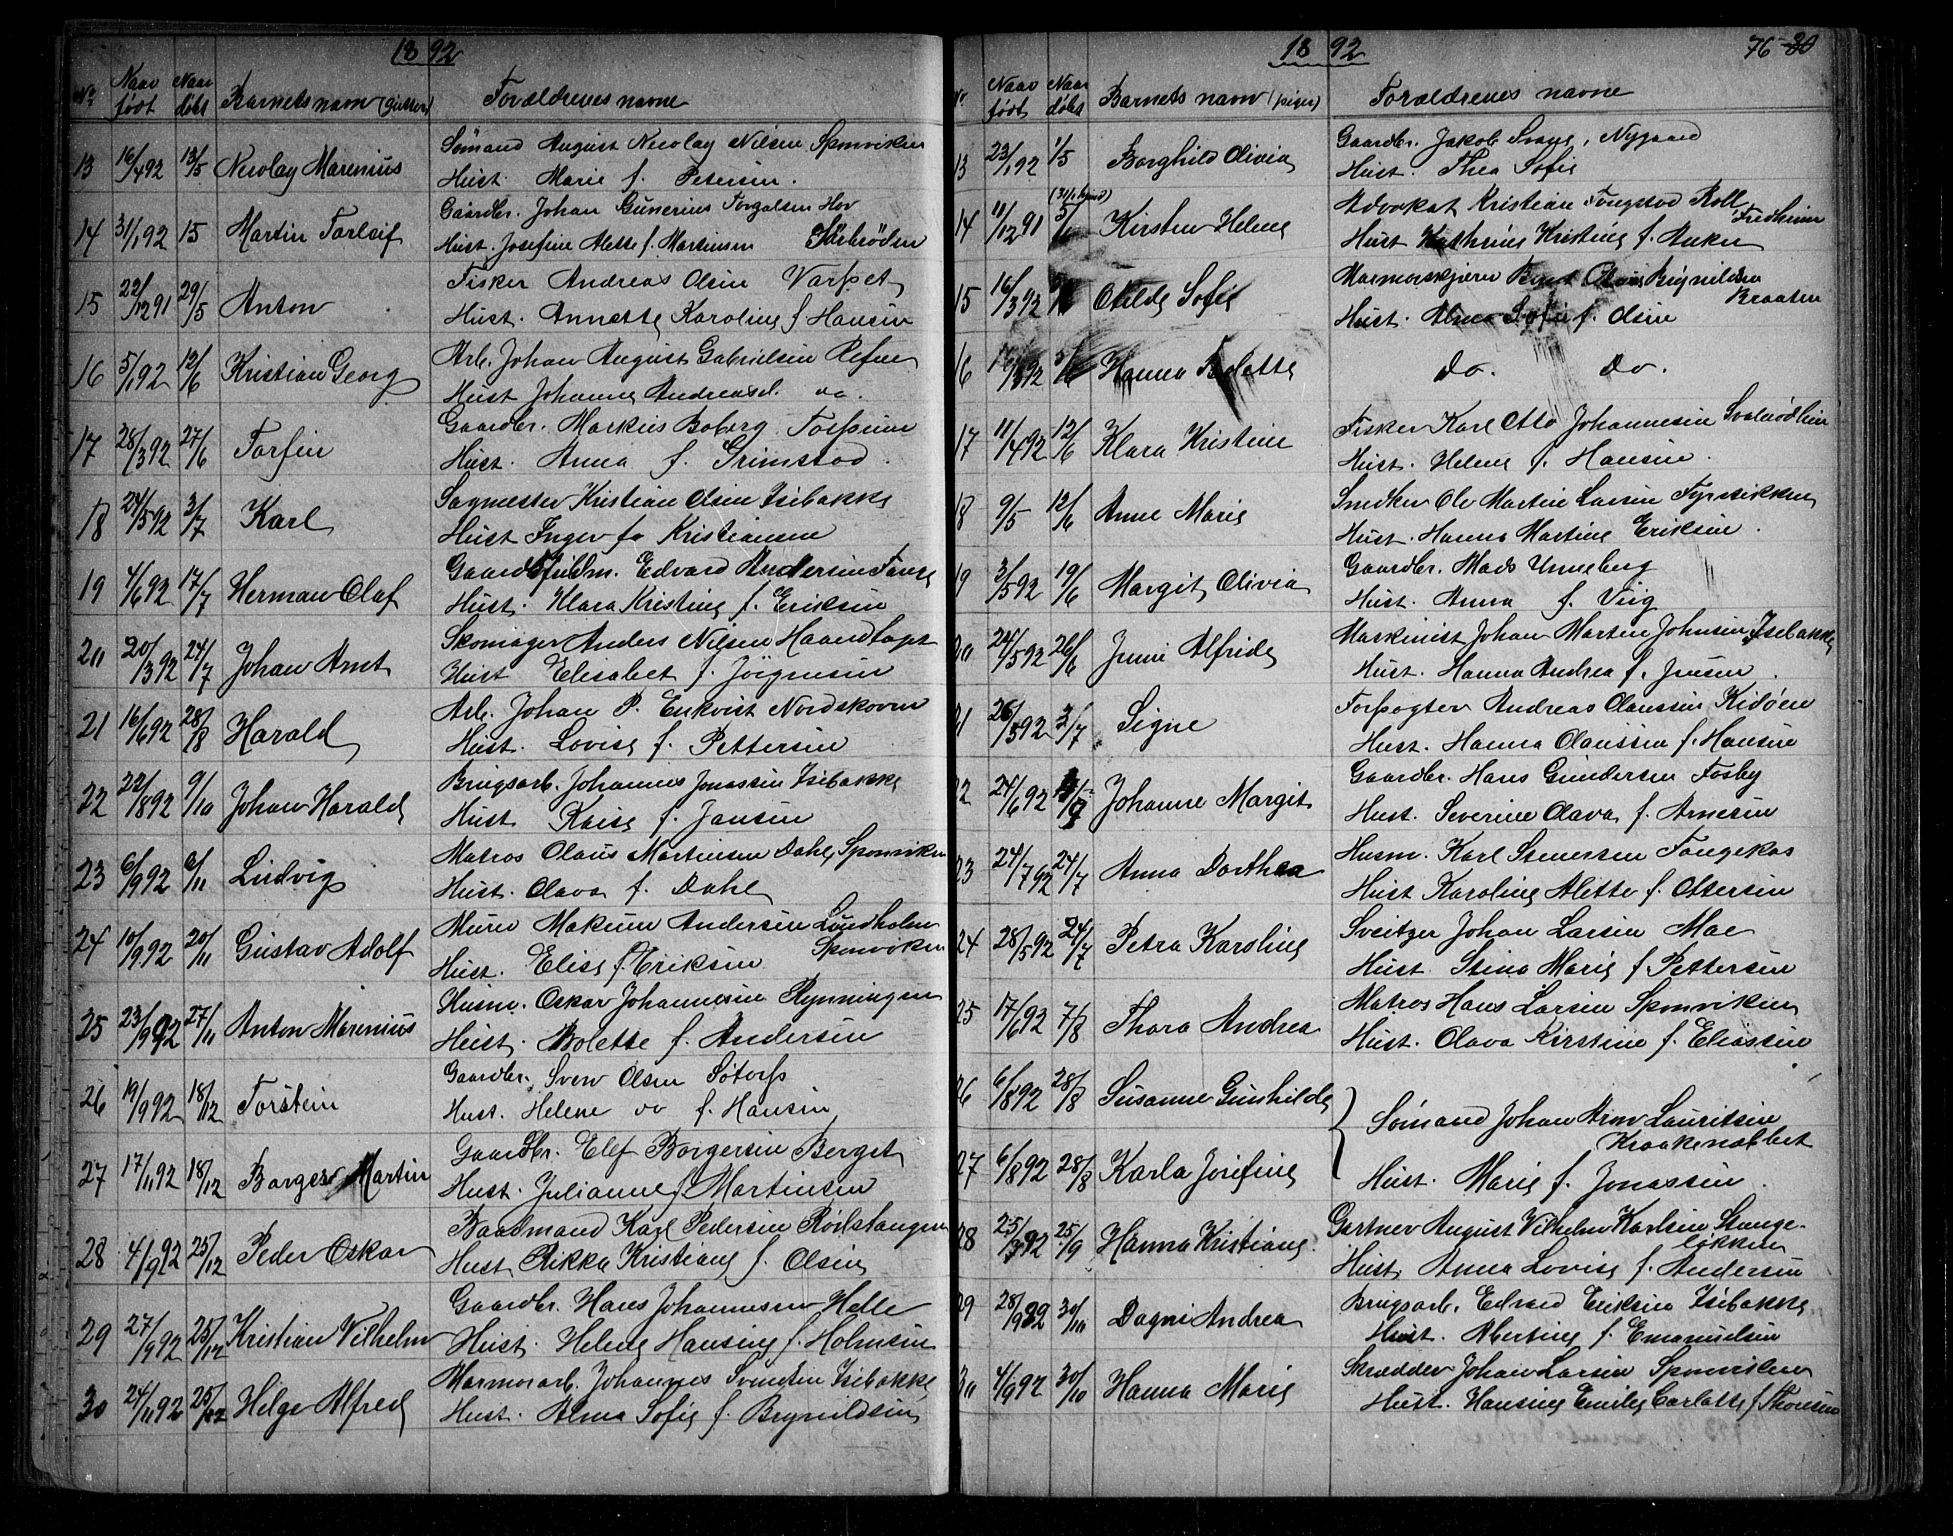 1892
No. Naar født Naar døbt Barnets navn (Gutter) Forældrenes navne
13 16/4 92 13/5 Nicolay Marenius Sømand August Nicolay Nilsen Sponviken
Hust. Marie f. Petersen.
14 31/1 92 15 Martin Torleif Gaardbr. Johan Gunerius Torgalsen Hov
Hust. Josefine Alette f. Martinsen
15 22/12 91 29/5 Anton Fisker Andreas Olsen Varpet
Hust. Annette Karoline f. Hansen
16 5/1 92 12/6 Kristian Georg Arb. Johan August Gabrielsen Refne
Hust Johanne Andreasd. do.
17 28/3 92 27/6 Torfin Gaardbr. Markus Boberg Torpum
Hust. Anna f. Grimstad.
18 24/5 92 3/7 Karl Sagmester Kristian Olsen Isebakke
Hust Inger fø Kristiansen
19 4/6 92 17/7 Herman Olaf Gaardb Edvard Andersen Tange
Hust. Klara Kristine f. Eriksen
20 20/3 92 24/7 Johan Arnt Skomager Anders Nilsen Haandtapt
Hust Elisabet f. Jörgensen
21 16/6 92 28/8 Harald Arb. Johan P. Enkvist Nordskoven
Hust. Lovise f. Pettersen
22 22/8 92 9/10 Johan Harald Brugsarb. Johannes Jonassen Isebakke
Hust Kaise f. Jansen
23 6/9 92 6/11 Ludvig Matros Olaus Martinsen Dahle, Sponviken
Hust. Olava f. Dahl
24 10/9 92 20/11 Gustav Adolf Murer Andersen Lundholm
Hust. Elise f. Eriksen Sponviken
25 23/9 92 27/11 Anton Marenius Husm. Oskar Johannesen Rynningen
Hust. Bolette f. Andersen
26 19/9 92 18/12 Torstein Gaardbr. Sven Olsen Sötorp
Hust. Helene do f. Hansen
27 17/11 92 18/12 Borger Martin Gaardbr. Elef Borgersen Berget
Hust. Julianne f Martinsen
28 4/9 92 25/12 Peder Oskar Baadmand Karl Pedersen Rödstangen
Hust. Rikka Kristiane f. Olsen
29 27/9 92 25/12 Kristian Vilhelm Gaardbr. Hans Johannesen Helle
Hust. Helene Hansine f. Holmsen
30 24/11 92 25/12 Helge Alfred Marmorarb. Johannes Svendsen Isebakke
Hust. Alma Sofie f. Brynildsen
1892 76 30
No. Naar født Naar døbt Barnets navn (piger) Forældrenes navne
13 23/1 92 1/5 Borghild Olivia Gaardbr. Jakob Svae, Nygaard
Hust. Thea Sofie
14 11/12 91 5/ Kirsten Helene Advokat Kristian Tongstad Roll
Fredheim
Hust Kathrine Kristine f. Anker
15 16/3 92 Otilde Sofie Marmorskjærer Bernt Olaus Brynildsen
Braaten
Hust. Alma Sofie f. Olsen
16 16/3 92 5/6 Hanna Bolette Do. Do.
17 11/4 92 12/6 Klara Kristine Fisker Karl Otto Johannesen
Hust. Helene f. Hansen.
18 9/5 12/6 Anne Marie Snedker Ole Martin Larsen
Hust. Hanna Martine Eriksen.
19 3/5 92 19/6 Margit Olivia Gaardbr. Mads Unneberg
Hust. Anna f. Viig
20 24/5 92 26/6 Jenni Alfride Maskinist Johan Martin Johnsen Isebakke
Hust. Hanna Andrea f. Jensen.
21 26/5 92 3/7 Signe Forpagter Andreas Claussen Kidöen
Hust. Hanna Claussen f. Hansen
22 24/6 92 Johanne Margit Gaardbr. Hans Gundersen Fosby
Hust. Severine Olava f. Arnesen
23 24/7 92 24/7 Anna Dorthea Husm. Karl Stenersen Tangekas
Hust Karoline Alette f. Ottersen
24 28/5 92 24/7 Petra Karoline Sveitzer Johan Larsen Moe
Hust. Stina Marie f. Pettersen
25 17/6 92 7/8 Thora Andrea Matros Hans Larsen Sponviken
Hust. Olava Kirstine f. Eliassen
26 6/8 92 28/8 Susanne Gunhilde Sømand Johan Aron Lauritsen
Kraakenabbet
27 6/8 92 28/8 Karla Josefine Hust. Marie f. Jonassen.
28 25/ 92 25/9 Hanna Kristiane. Gartner August Vilhelm Karlsen Stange-
løkken
Hust. Anna Lovise f. Andersen
29 28/9 92 30/10 Dagni Andrea Brugsarb. Edvard Eriksen Isebakke
Hust. Martine f. Emanuelsen
30 4/9 92 30/10 Hanna Marie Skrædder Johan Larsen Sponviken
Hust. Hansine Emilie Carlotte f Thoresen